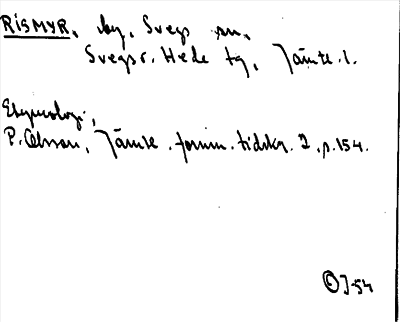 RISMYR, by, Svegs sn,
Svegs r. Hede tg, Jämte. l.
Etymologi,
P. Olsson, Jämte. fornm. tidskr. 2, p. 154.
J-54